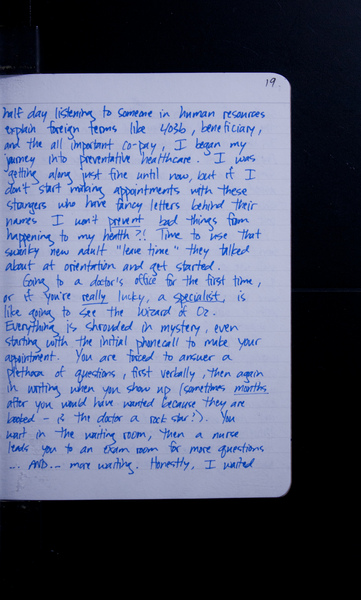 19
half day listening to someone in human resources
explain foreign terms like 403b, beneficiary,
and the all important co-pay, I began my
journey into preventative healthcare. I was
getting along just fine until now, but if I
don't start making appointments with these
strangers who have fancy letters behind their
names I won't prevent bad things from
happening to my health?! Time to use that
swanky new adult "leave time" they talked
about at orientation and get started.
Going to a doctor's office for the first time,
or if you're really lucky, a specialist, is
like going to see the Wizard of Oz.
Everything is shrouded in mystery, even
starting with the initial phonecall to make your
appointment. You are forced to answer a
plethora of questions, first verbally, then again
in writing when you show up (sometimes months
after you would have wanted because they are
booked - is the doctor a rock star?). You
wait in the waiting room, then a nurse
leads you to an exam room for more questions
... AND... more waiting. Honestly, I waited